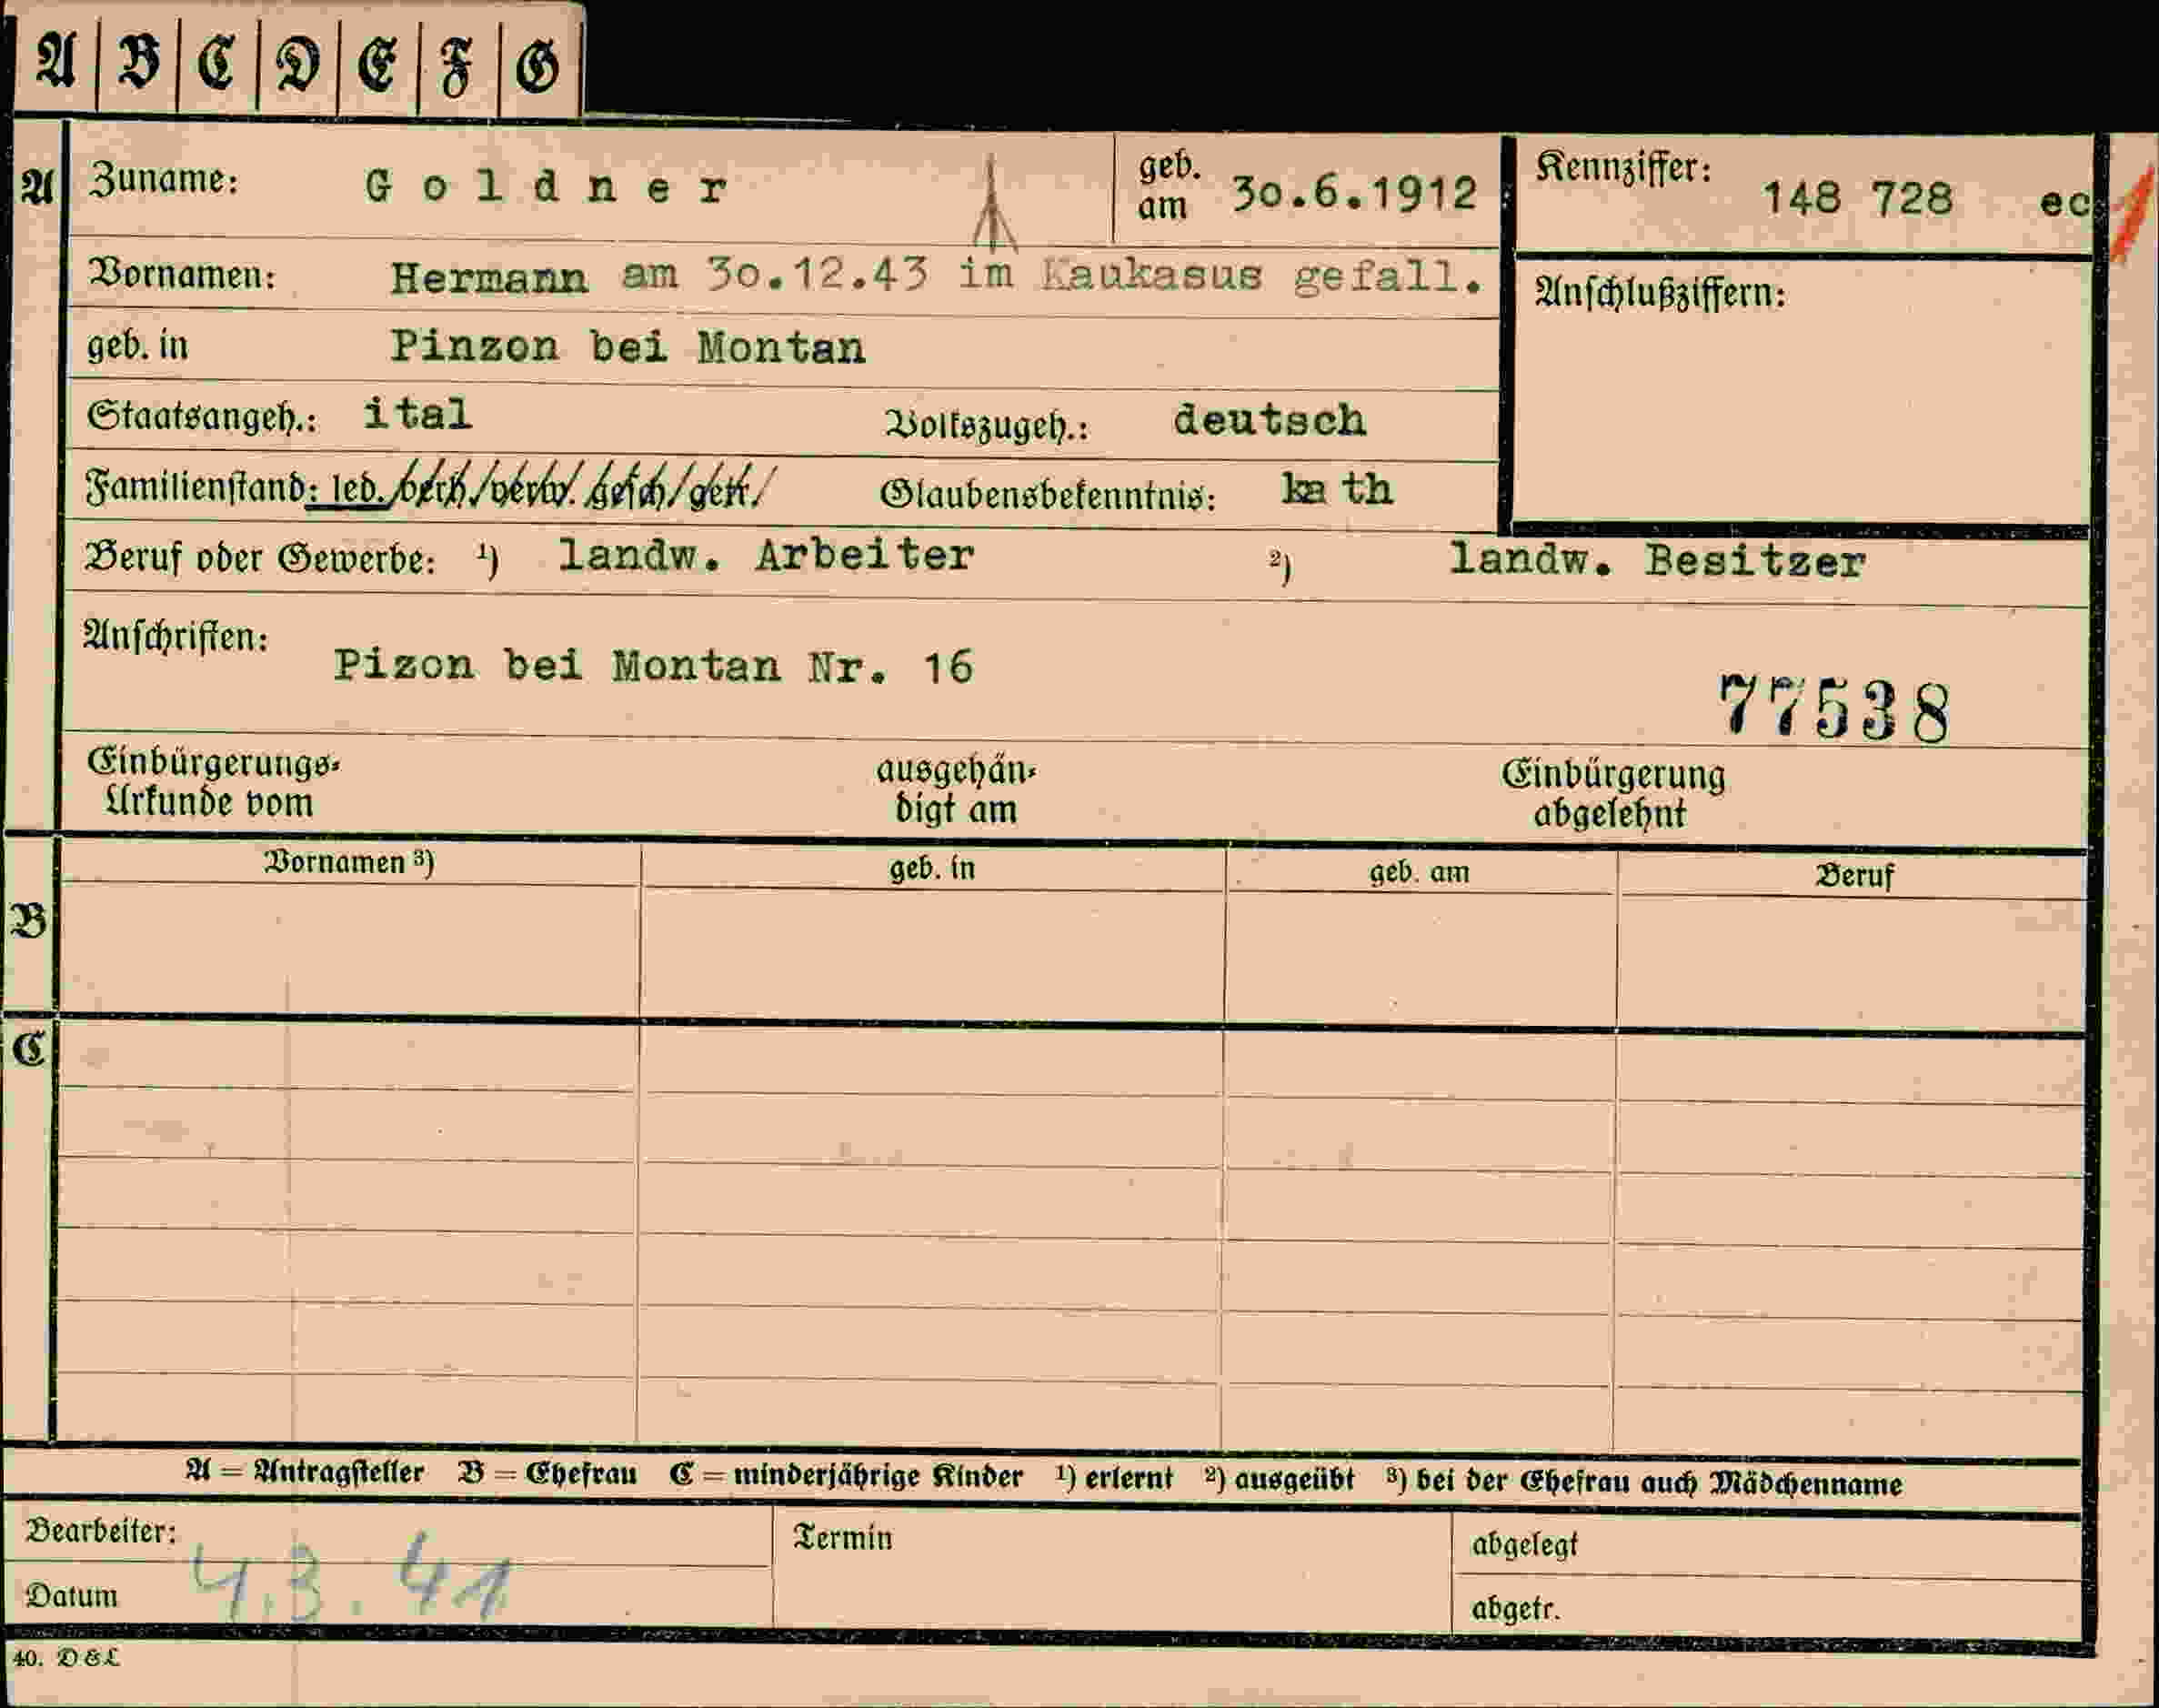 A B C D E F G
A Zuname: Goldner geb. am 30.6.1912 Kennziffer: 148 728 ec
Vornamen: Hermann am 30.12.43 im Kaukasus gefall. Anschlußziffern:
geb. in Pinzon bei Montan
Staatsangeh.: ital Volkszugeh.: deutsch
Familienstand: led./verh./verw./gesch./getr./ Glaubensbekenntnis: ka th
Beruf oder Gewerbe: ¹) landw. Arbeiter ²) landw. Besitzer
Anschriften: Pizon bei Montan Nr. 16
77538
Einbürgerungs-Urkunde vom ausgehändigt am Einbürgerung abgelehnt
B Vornamen ³) geb. in geb. am Beruf
C
A = Antragsteller B = Ehefrau C = minderjährige Kinder ¹) erlernt ²) ausgeübt ³) bei der Ehefrau auch Mädchenname
Bearbeiter: Termin abgelegt
Datum 4.3.41 abgetr.
40. D&L